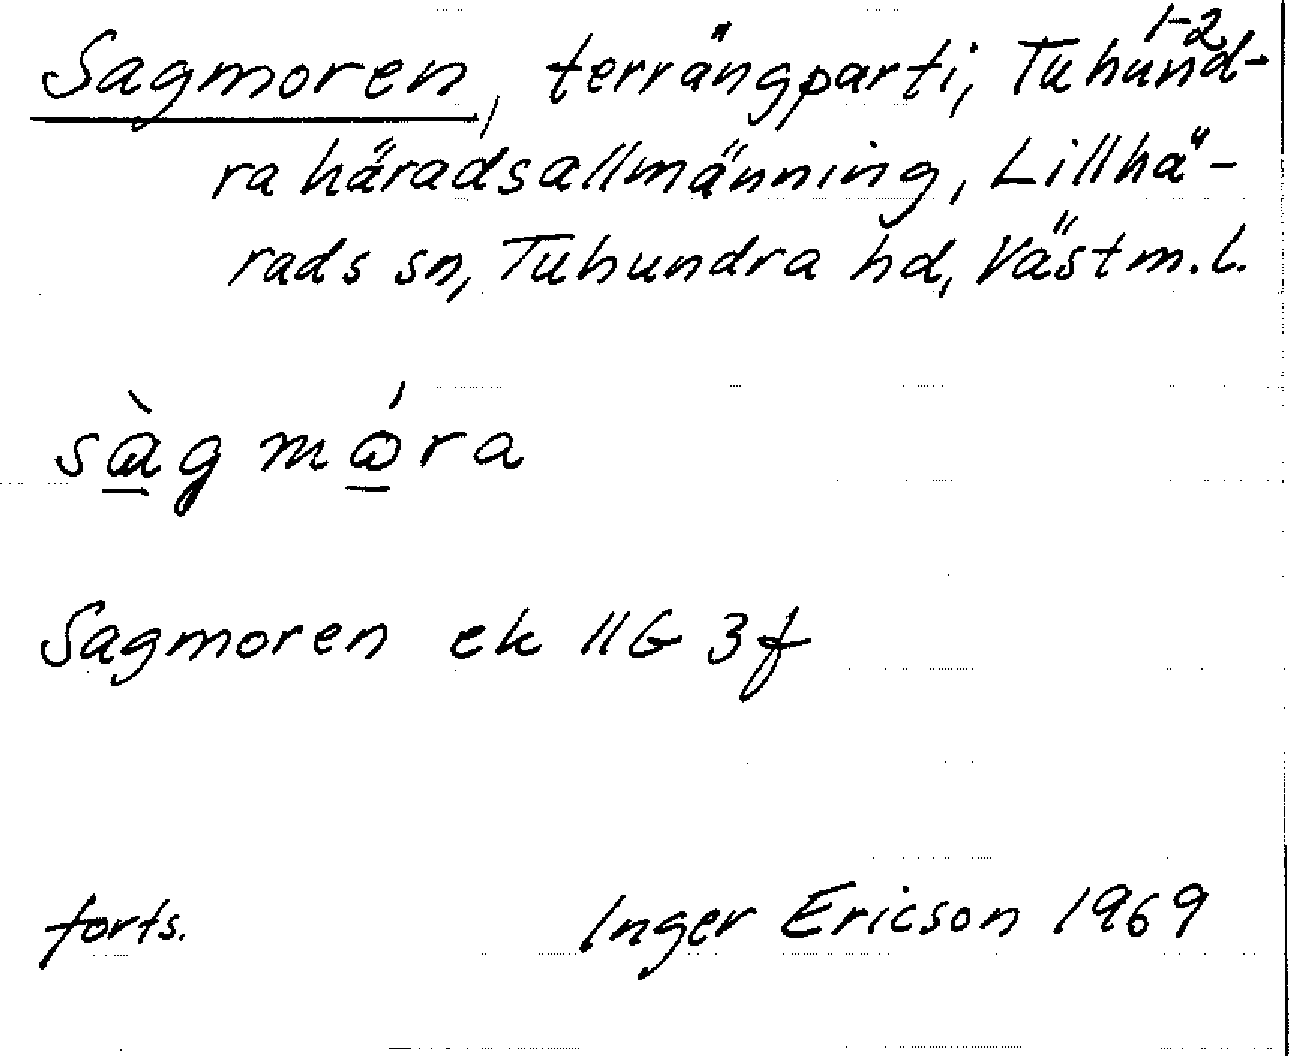 1-2
Sagmoren, terrängparti, Tuhund-
ra häradsallmänning, Lillhä-
rads sn, Tuhundra hd, Västm.l.
Sagmoren ek 11G 3f
forts. Inger Ericson 1969